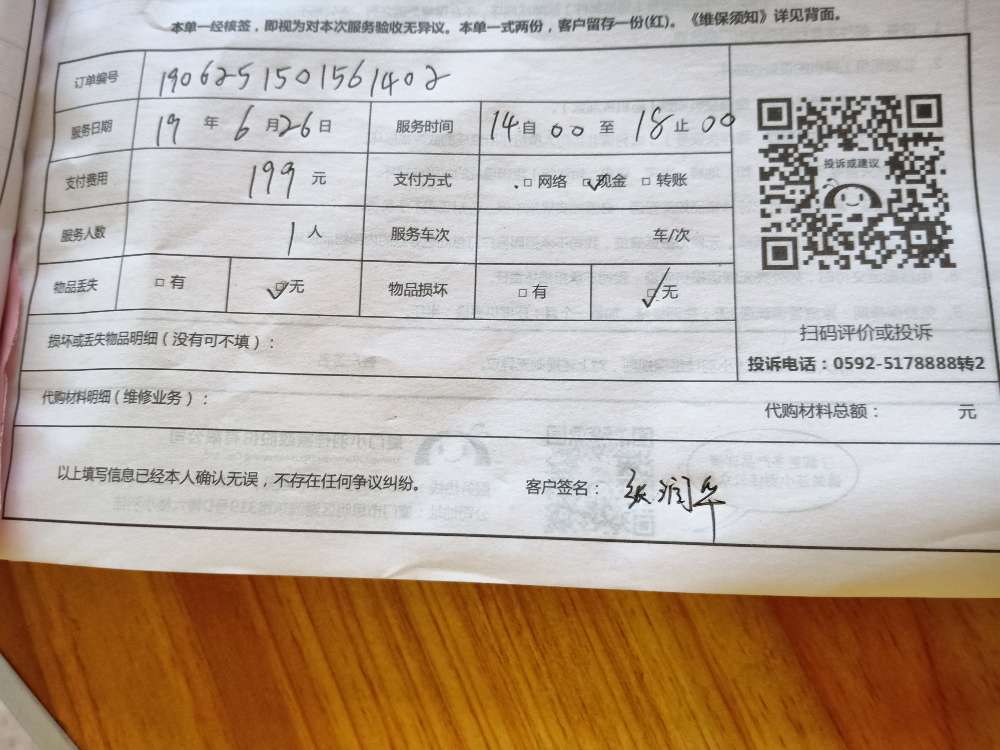 本单一经核签，即视为对本次服务验收无异议。本单一式两份，客户留存一份(红)。《维保须知》详见背面。
订单编号 1906251501561402
服务日期 19 年 6 月 26 日 服务时间 14 自 00 至 18 止 00
支付费用 199 元 支付方式 □ 网络 ☑ 现金 □ 转账
服务人数 1 人 服务车次 车/次
物品丢失 □ 有 ☑ 无 物品损坏 □ 有 ☑ 无
投诉或建议
扫码评价或投诉
投诉电话：0592-5178888转2
损坏或丢失物品明细（没有可不填）：
代购材料明细（维修业务）： 代购材料总额： 元
以上填写信息已经本人确认无误，不存在任何争议纠纷。 客户签名： 张润华